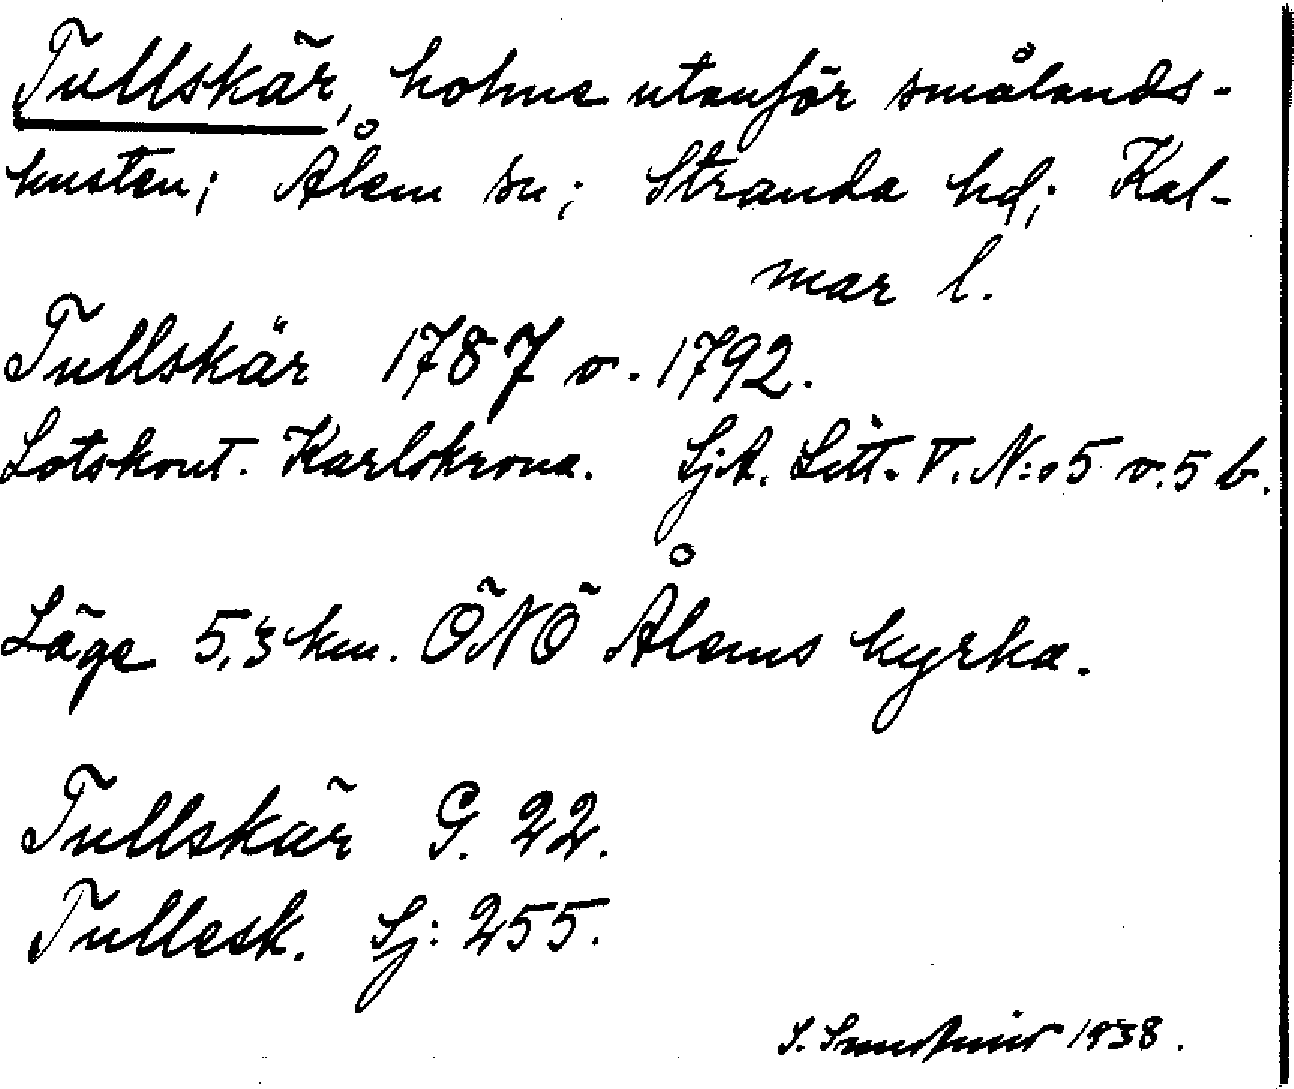 Tullskär, holme utanför smålands-
kusten; Ålem sn; Stranda hd; Kal-
mar l.
Tullskär 1787 o. 1792.
Lotskont. Karlskrona. SjA. Litt. V. N:o 5 o. 5 b.
Läge 5,3 km. ÖNÖ Ålems kyrka.
Tullskär G. 22.
Tullesk. Sj: 255.
S. 1938.